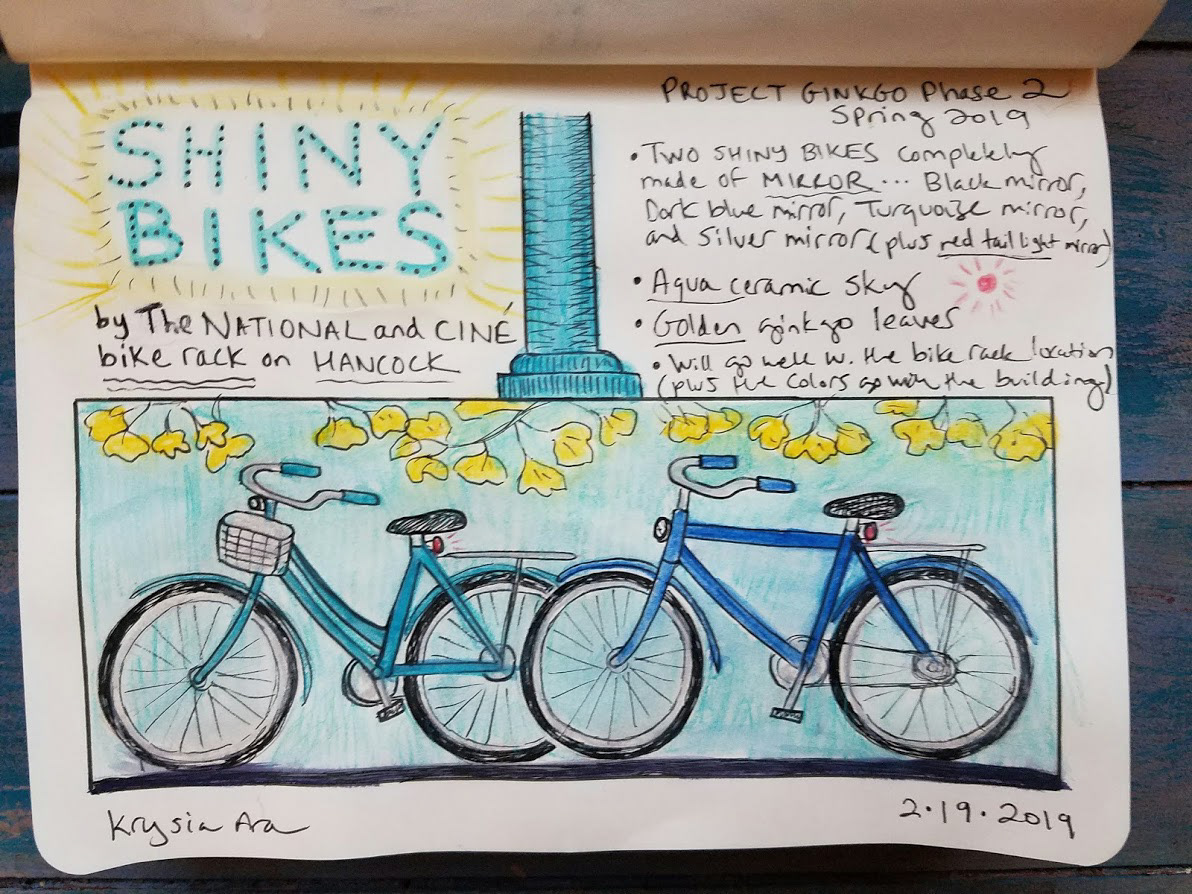 SHINY
BIKES
by The NATIONAL and CINÉ
bike rack on HANCOCK
PROJECT GINKGO Phase 2
Spring 2019
• TWO SHINY BIKES completely
made of MIRROR... Black mirror,
Dark blue mirror, Turquoise mirror,
and Silver mirror (plus red tail light mirror)
• Aqua ceramic sky
• Golden ginkgo leaves
• Will go well w. the bike rack location
(plus the colors go with the building)
Krysia Ara
2·19·2019